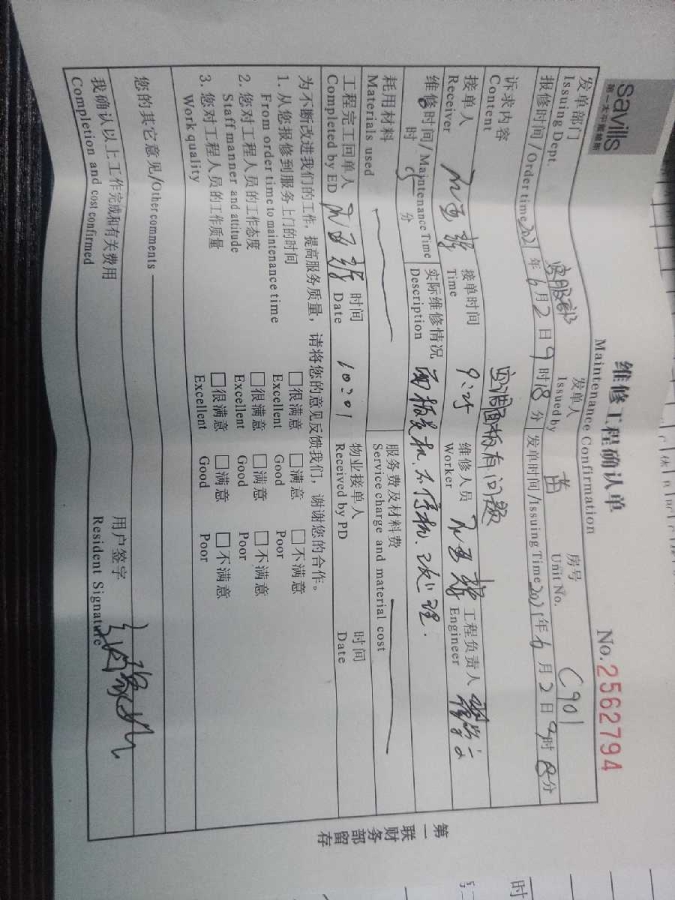 savills
第一太平戴维斯
维修工程确认单
Maintenance Confirmation
No.2562794
发单部门
Issuing Dept.
客服部
发单人
Issued by
苗
房号
Unit No.
C901
报修时间/Order time 2021年6月2日9时18分
发单时间/Issuing Time 2021年6月2日9时 分
诉求内容
Content
空调面板有问题
接单人
Receiver
接单时间
Time
9:25
维修人员
Worker
工程负责人
Engineer
维修时间/Maintenance Time
时 分
实际维修情况
Description
面板关机,不停机.
耗用材料
Materials used
服务费及材料费
Service charge and material cost
工程完工回单人
Completed by ED
时间
Date
10:01
物业接单人
Received by PD
时间
Date
为不断改进我们的工作,提高服务质量,请将您的意见反馈我们,谢谢您的合作。
1. 从您报修到服务上门的时间 □很满意 □满意 □不满意
From order time to maintenance time Excellent Good Poor
2. 您对工程人员的工作态度 □很满意 □满意 □不满意
Staff manner and attitude Excellent Good Poor
3. 您对工程人员的工作质量 □很满意 □满意 □不满意
Work quality Excellent Good Poor
您的其它意见/Other comments
我确认以上工作完成和有关费用
Completion and cost confirmed
用户签字
Resident Signature
第一联 财务部留存
时